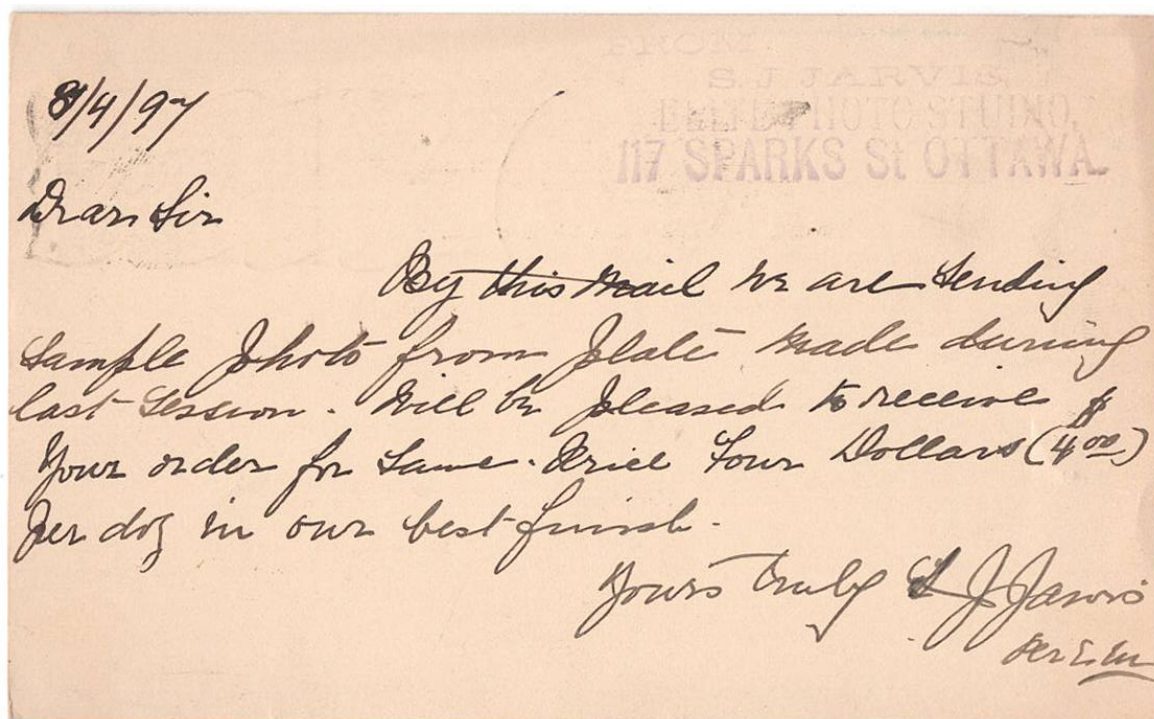 FROM
S. J JARVIS
ELITE PHOTO STUIDO,
117 SPARKS St OTTAWA.
8/4/97
Dear Sir
By this mail we are sending
Sample Photo from Plate made during
last Session. Will be pleased to receive $
Your order for Same. Price Four Dollars (4 00)
Per doz in our best finish.
Yours Truly S J Jarvis
Per E.M